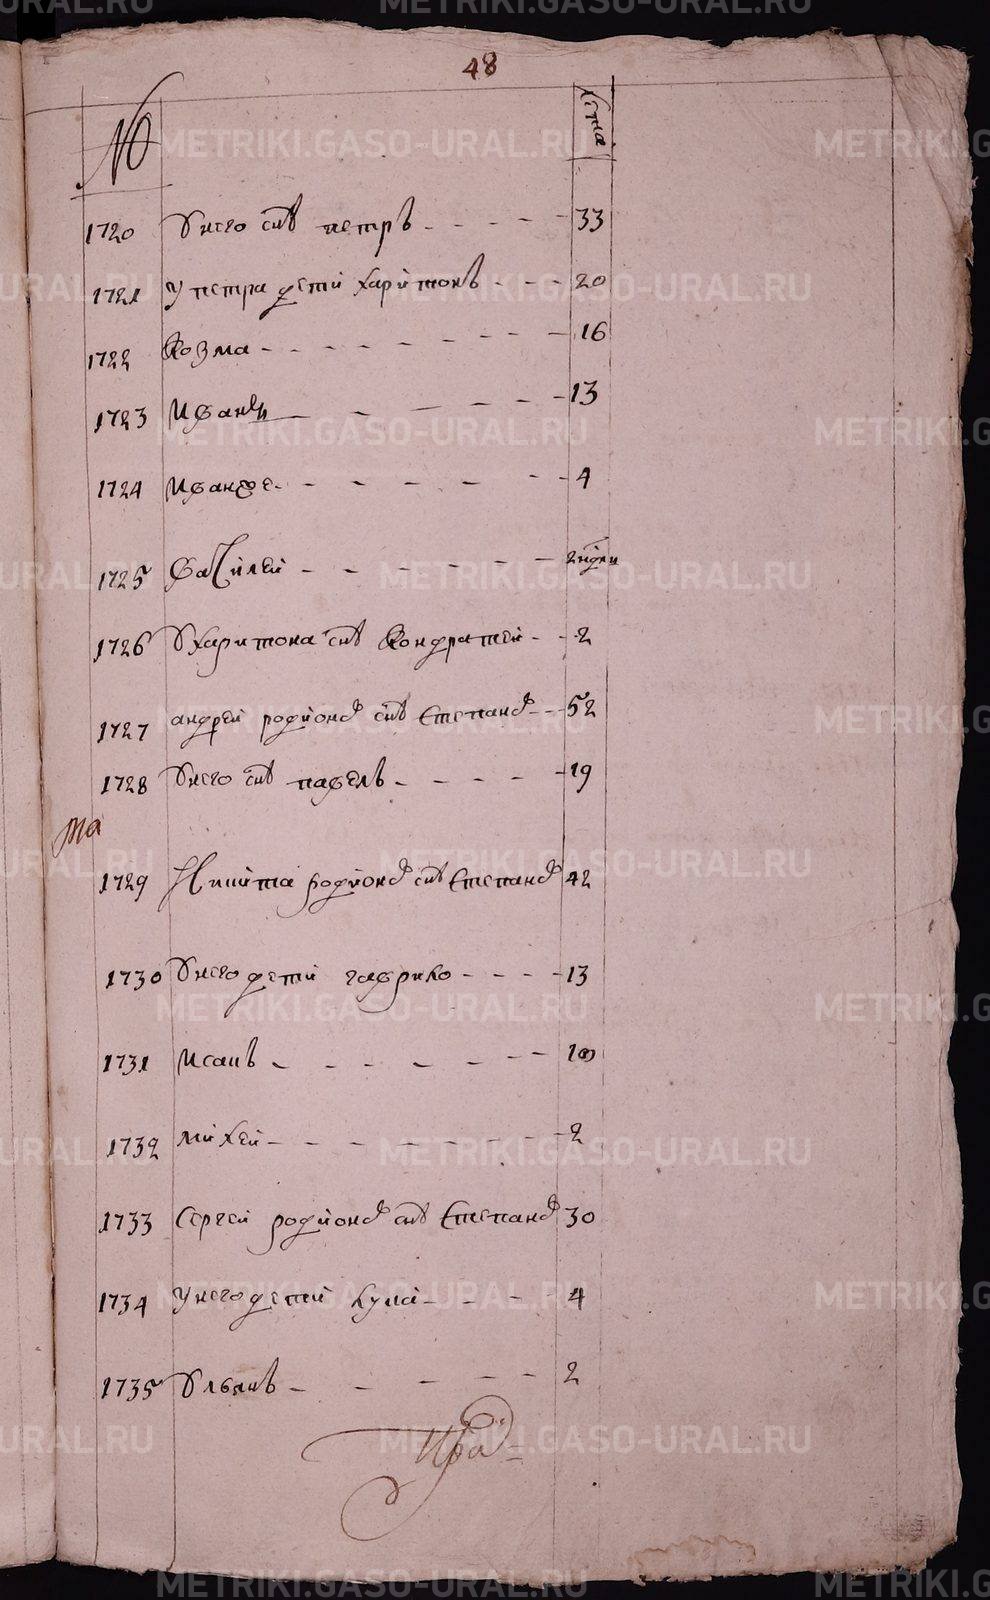 48
№ Лѣта
1720 У него снъ петръ 33
1721 У петра дети харитонъ 20
1722 Козма 16
1723 Иванъ 13
1724 Иванже 4
1725 Василей 2 нѣдли
1726 У харитона снъ Кондратей 2
1727 андрей родионъ снъ Степанъ 52
1728 У него снъ павелъ 19
1729 Никита родионъ снъ Степанъ 42
1730 У него дети гаврило 13
1731 Исакъ 10
1732 михей 2
1733 Сергей родионъ снъ Степанъ 30
1734 У него дети 4
1735 Ульянъ 2
METRIKI.GASO-URAL.RU